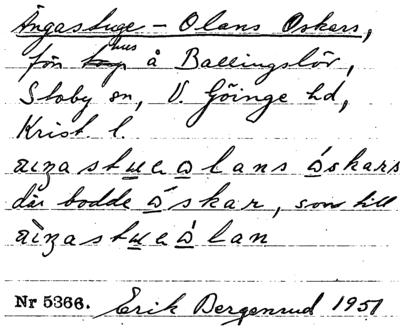 Ängastuge-Olans Oskars,
förr hus å Ballingslöv,
Stoby sn, V. Göinge hd,
Krist. l.
æiŋastuɐ ɷlans ɷ́skars
där bodde ɷ́skar, son till
æ̀iŋastuɐ ɷ́lan
Nr 5366. Erik Bergenrud 1951